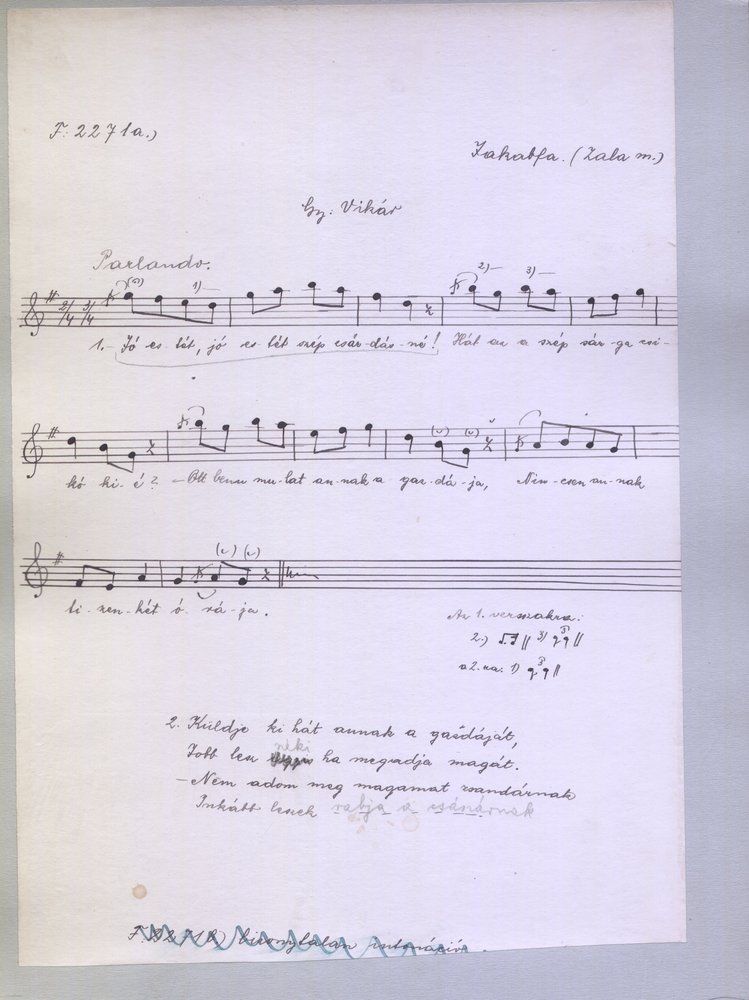 F: 2271a.)
Jakabfa. (Zala m.)
Gy. Vikár
Parlando.
1)
2)
3)
2/4 3/4
1. – Jó es-tét, jó es-tét szép csár-dás-né! Hát az a szép sár-ga csi-
kó ki-é? – Ott benn mu-lat an-nak a gaz-dá-ja, Nin-csen an-nak
ti-zen-két ó-rá-ja.
Az 1. verszakra:
2.) 3)
a 2. ra: 1)
2. Küldje ki hát annak a gazdáját,
neki
Jobb lesz ha megadja magát.
– Nem adom meg magamat zsandárnak
Inkább leszek rabja a császárnak
bizonytalan intonáció